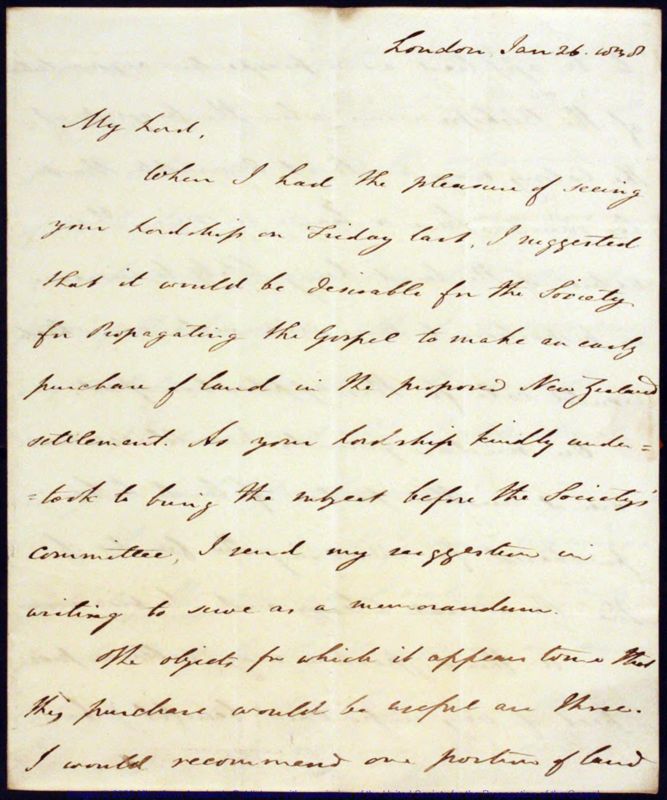 London, Jan 26. 1838
My Lord,
When I had the pleasure of seeing
your Lordship on Friday last, I suggested
that it would be desirable for the Society
for Propagating the Gospel to make an early
purchase of land in the proposed New Zealand
settlement. As your Lordship kindly under=
=took to bring the subject before the Society's
committee, I send my suggestion in
writing to serve as a memorandum.
The objects for which it appears to me that
this purchase would be useful are three.
I would recommend one portion of land